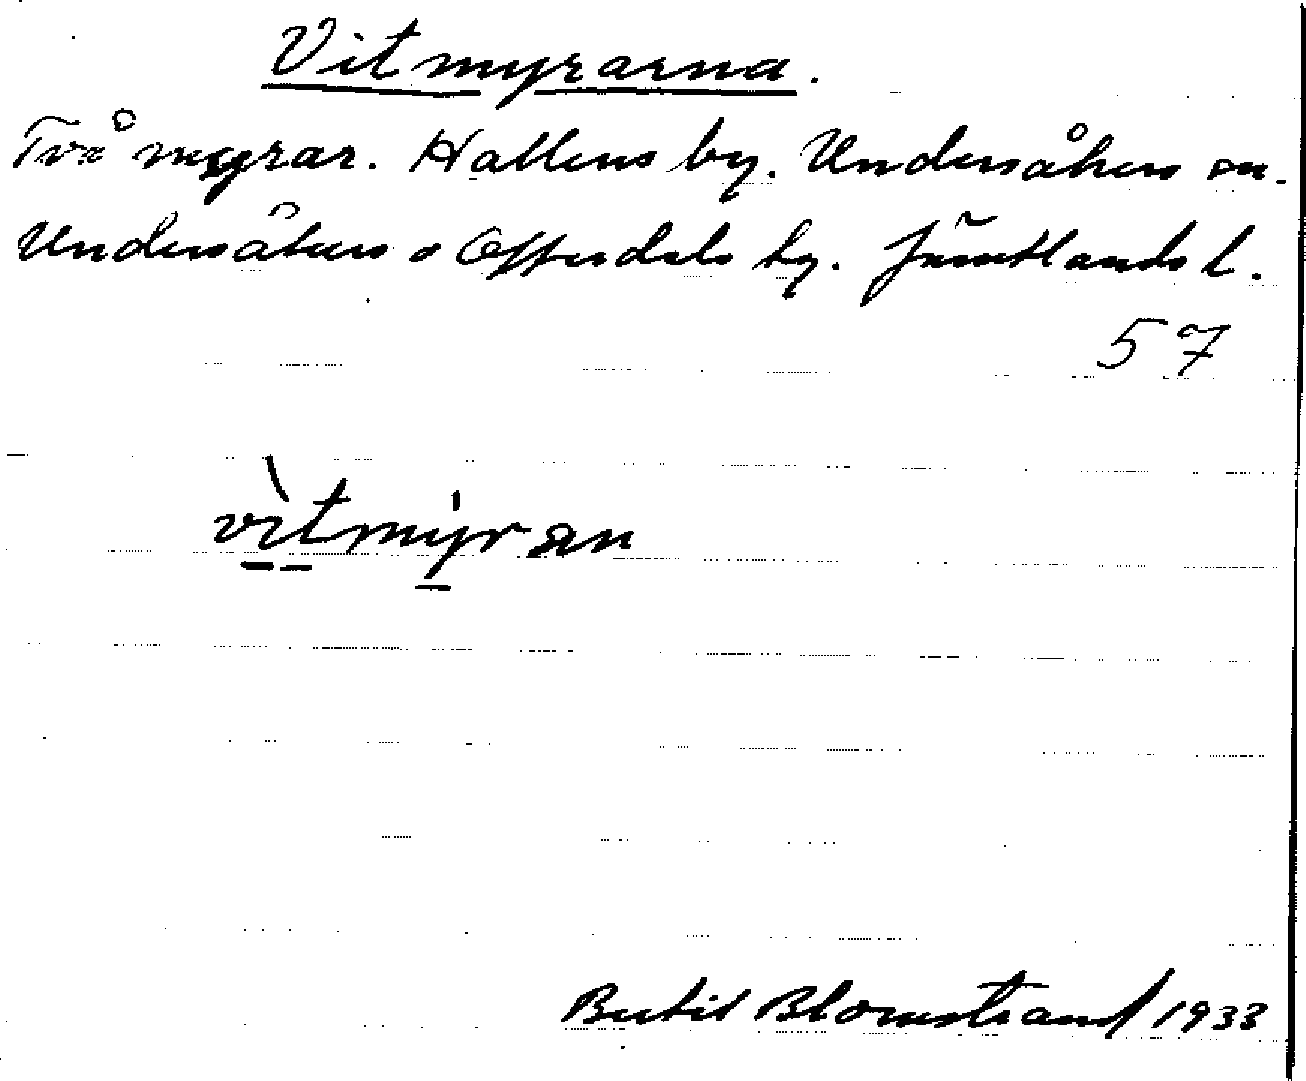 Vitmyrarna.
Två myrar. Hallens by. Undersåkers sn.
Undersåkers o Offerdals tg. Jämtlands l.
57
vìtmýran
Bertil Blomstrand 1933